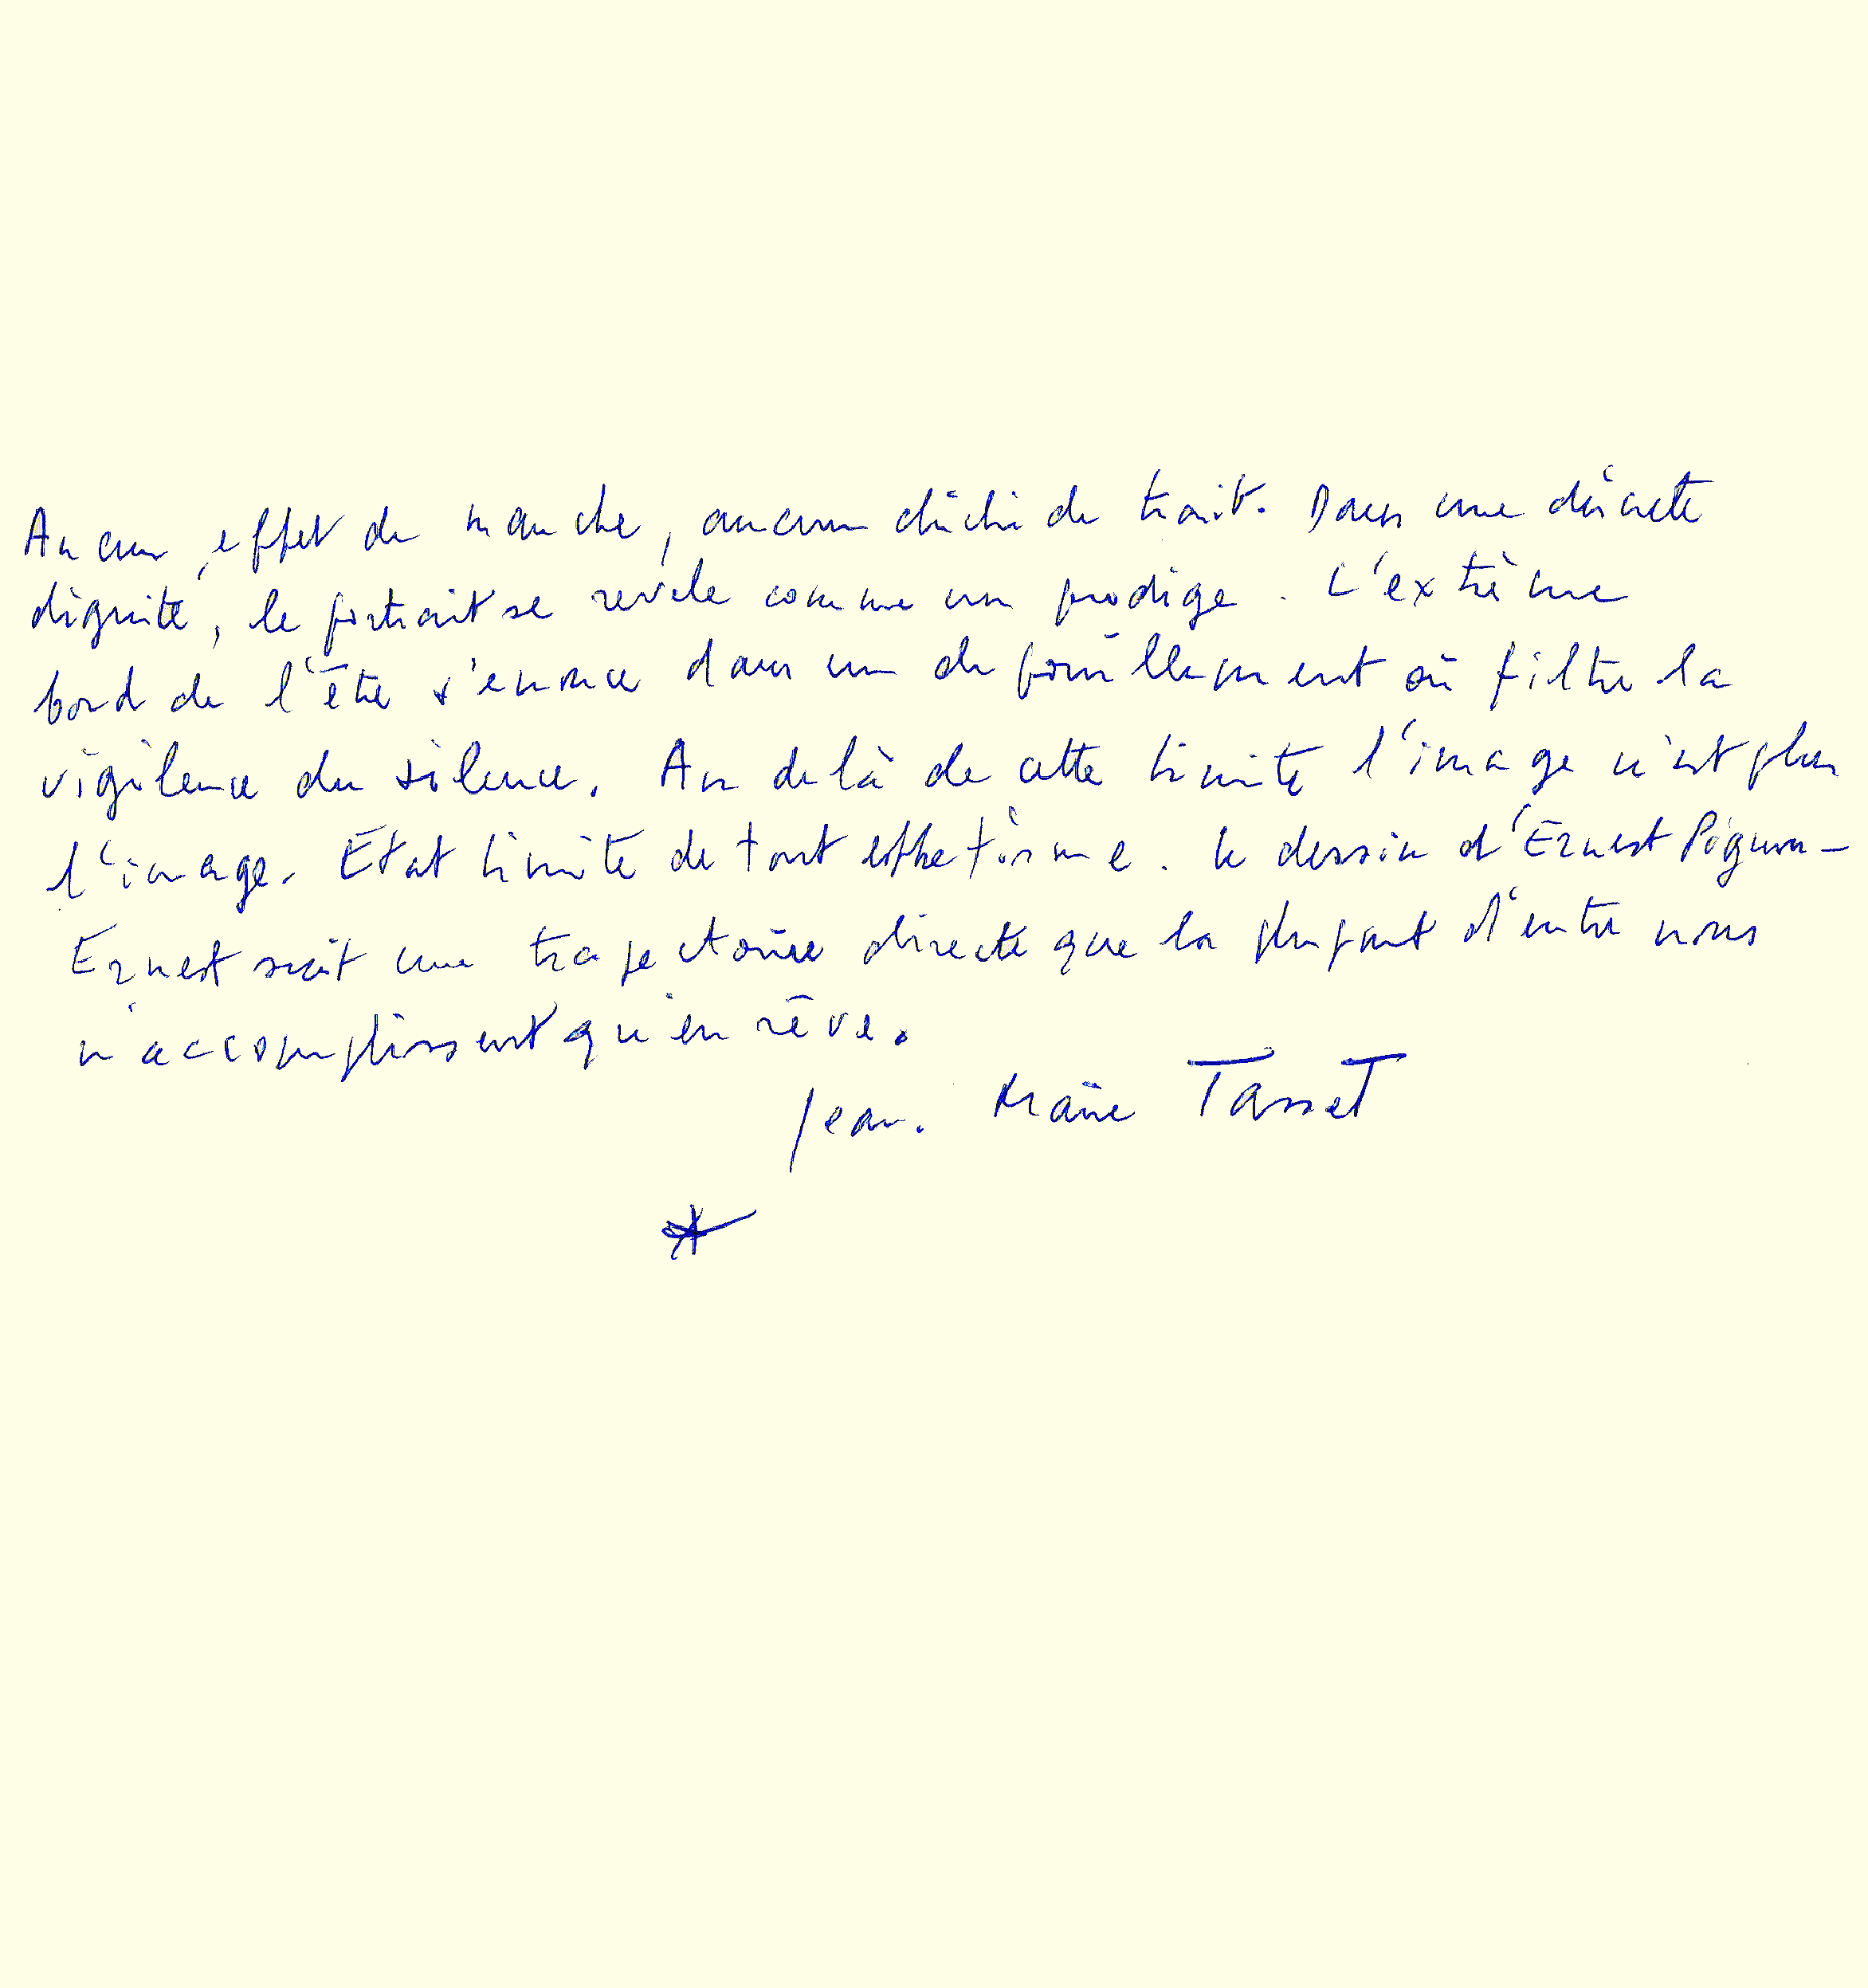 Aucun effet de manche, aucun chichi de trait. Dans une discrète
dignité, le portrait se révèle comme un prodige. L'extrême
bord de l'être s'énonce dans un dépouillement où filtre la
vigilence du silence. Au delà de cette limite l'image n'est plus
l'image. Etat limite de tout esthétisme. Le dessin d'Ernest Pignon-
Ernest suit une trajectoire directe que la plupart d'entre nous
n'accomplissent qu'en rêve.
Jean. Marie Tasset